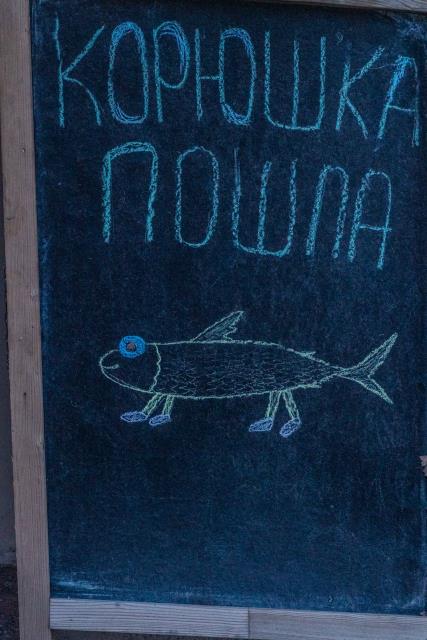 КОРЮШКА
ПОШЛА